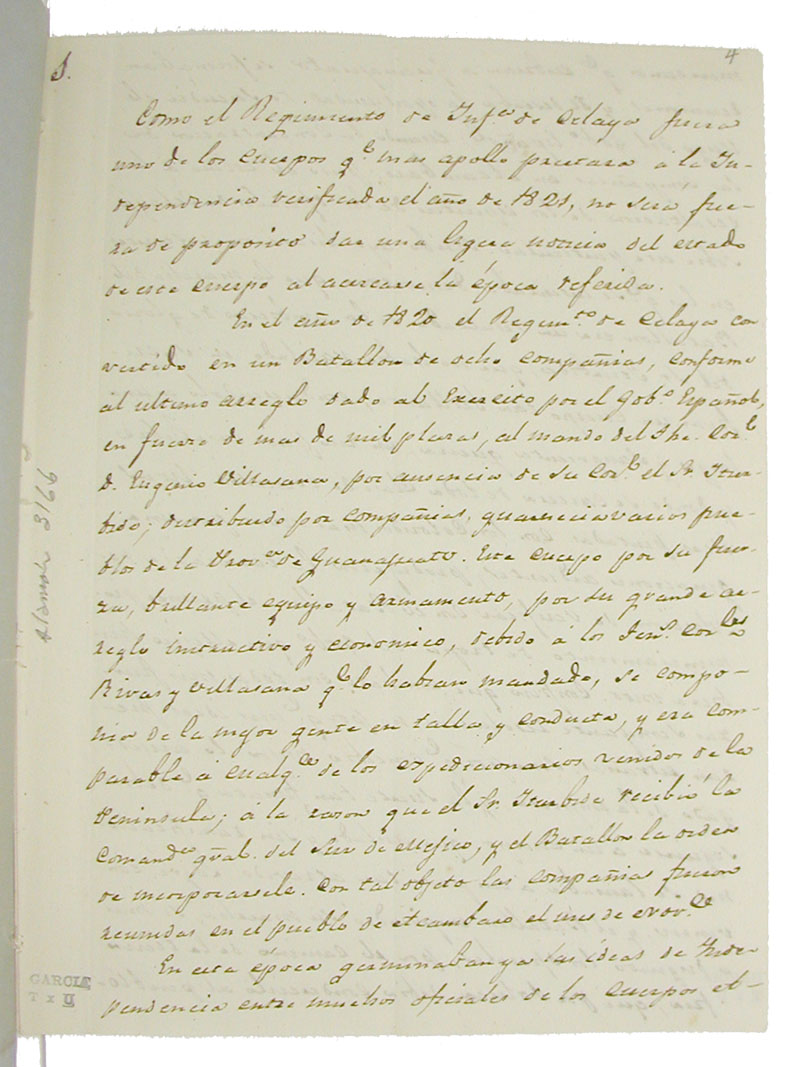 4
1.
Como el Regimiento de Inf.a de Celaya fuera
uno de los cuerpos q.e mas apollo prestara á la In-
dependencia verificada el año de 1821, no sera fue-
ra de proposito dar una ligera noticia del estado
de este cuerpo al acercarse la época referida.
En el año de 1820 el Regim.to de Celaya con
vertido en un Batallon de ocho compañias, conforme
al ultimo arreglo dado al Exercito por el Gob.o Español,
en fuerza de mas de mil plazas, al mando del The. Cor.l
d. Eugenio Villasana, por ausencia de su Cor.l el Sr. Itur-
bide; distribuido por compañias, guarnecia varios pue-
blos de la Prov.a de Guanajuato. Este cuerpo por su fuer-
za, brillante equipo y armamento, por su grande ar-
reglo instructivo y economico, debido á los Ten.s Cor.les
Rivas y Villasana q.e lo habian mandado, se compo-
nia de la mejor gente en talla y conducta, y era com-
parable á cualq.a de los expedicionarios venidos de la
Peninsula; á la razon que el Sr. Iturbide recibió la
Comand.a gral. del Sur de Mejico, y el Batallon la orden
de incorporarsele. Con tal objeto las compañias fueron
reunidas en el pueblo de Acambaro el mes de Nov.e
En esta época germinaban ya las ideas de Inde-
pendencia entre muchos oficiales de los cuerpos el-
Alamán 3166
GARCIA
T x U